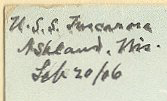 U.S.S. Tuscarora
Ashland, Wis.
Feb 20/06